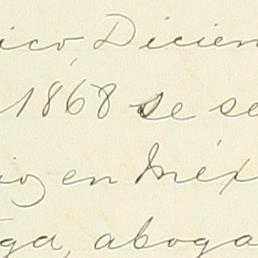 ico, Diciem
1868 se se
io, en Méx
ga, aboga